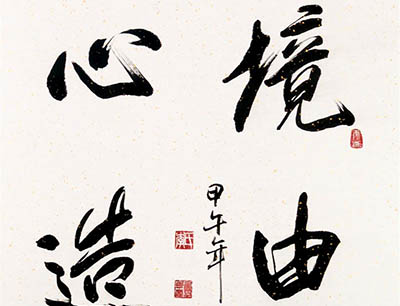 境由
心造
甲午年